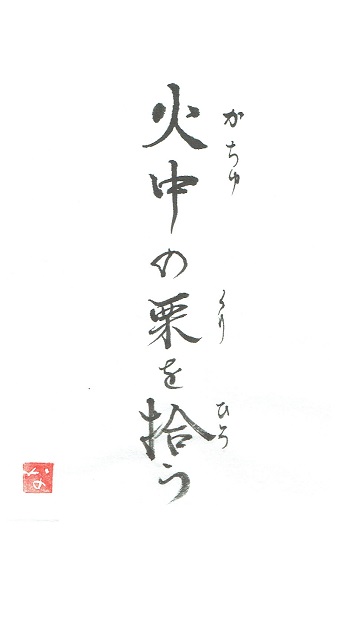 火中の栗を拾う
かちゅ
くり
ひろ
かめ